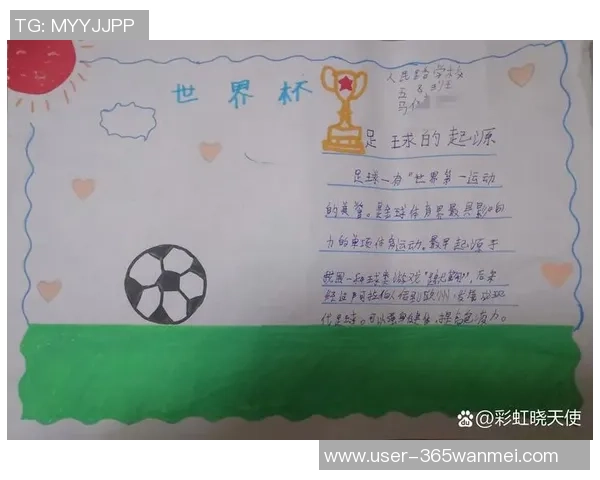 TG: MYYJJPP
世界杯
人民路学校
五
马
足球的起源
足球—有“世界第一运动
的美誉，是全球体育界最具影响
力的单项体育运动。最早起源于
我国一种球类游戏“蹴鞠”，后来
经过阿拉伯人传到欧洲，发展成现
代足球。可以强身健体，提高免疫力。
@彩虹晓天使
www.user-365wanmei.com